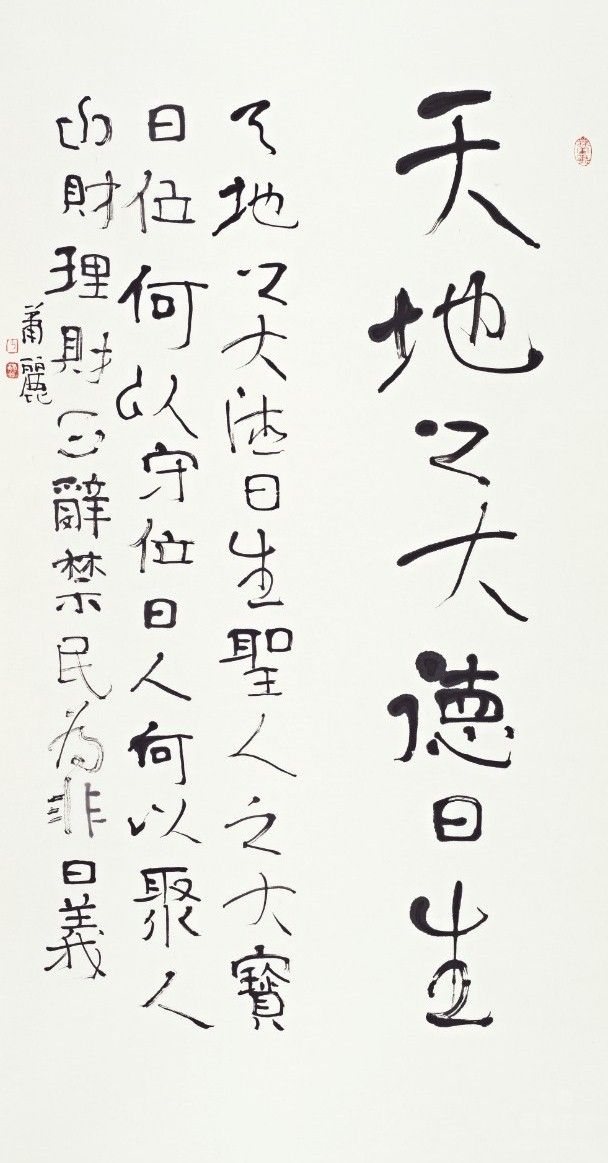 天地之大德曰生
天地之大德曰生聖人之大寶
曰位何以守位曰人何以聚人
曰財理財正辭禁民為非曰義
蕭麗